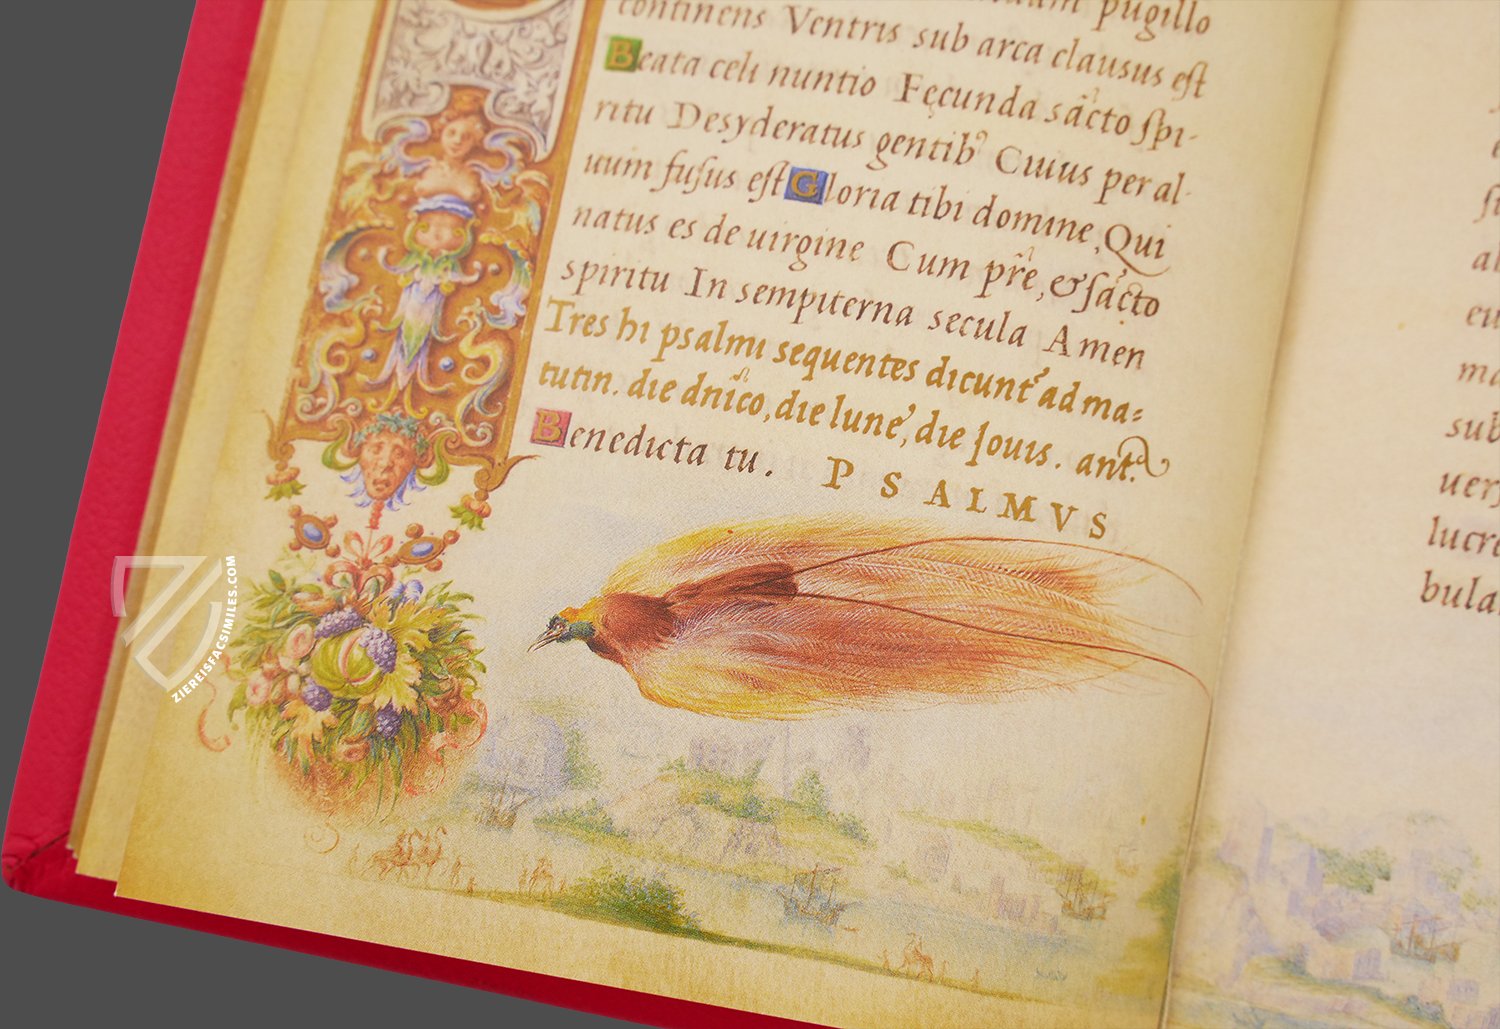 pugillo
continens Ventris sub arca clausus est
Beata celi nuntio Fęcunda sãcto spi-
ritu Desyderatus gentibꝰ Cuius per al-
uum fusus est Gloria tibi domine, Qui
natus es de uirgine Cum prẽ, & sãcto
spiritu In sempiterna secula Amen
Tres hi psalmi sequentes dicunt̃ ad ma=
tutin. die dnĩco, die lune, die Iouis. ant.
Benedicta tu.
PSALMVS
al
eu
ma
sub
uer
lucre
bula
ZIEREISFACSIMILES.COM